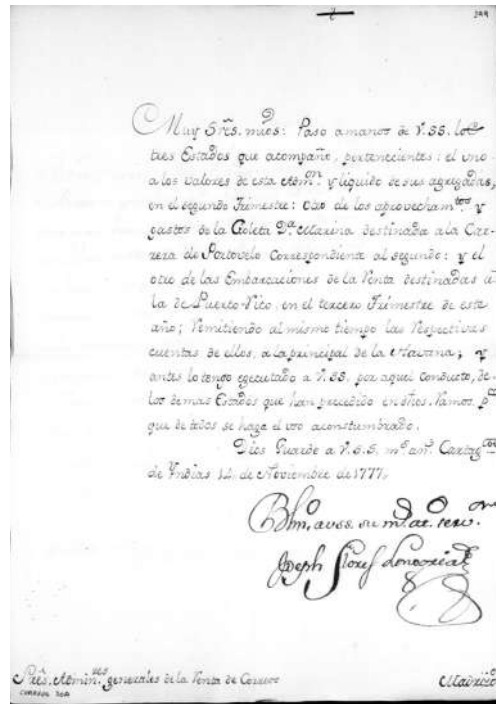 Muy Sres. mios: Paso amanos de V.SS. los
tres Estados que acompaño, pertenecientes: el uno
a los valores de esta Admon. y liquido de sus agregadas,
en el segundo Trimestre: Otro de los aprovecham.tos y
gastos de la Goleta Da. Marina destinada a la Car-
rera de Portovelo Correspondiente al segundo: y el
otro de las Embarcaciones de la Renta destinadas á
la de Puerto-Rico, en el tercero Trimestre de este
año; Remitiendo al mismo tiempo las Respectivas
cuentas de ellos, a la principal de la Havana; y
antes lo tengo egecutado a V.SS. por aquel conducto, de
los demas Estados que han precedido en dhos. Ramos pa.
que de todos se haga el uso acostumbrado.
Dios Guarde a V.S.S. ms. as. Cartagena
de Yndias 14, de Noviembre de 1777,
Joseph Flores Longoria
Sres. Admin.res generales de la Renta de Correos
Madrid